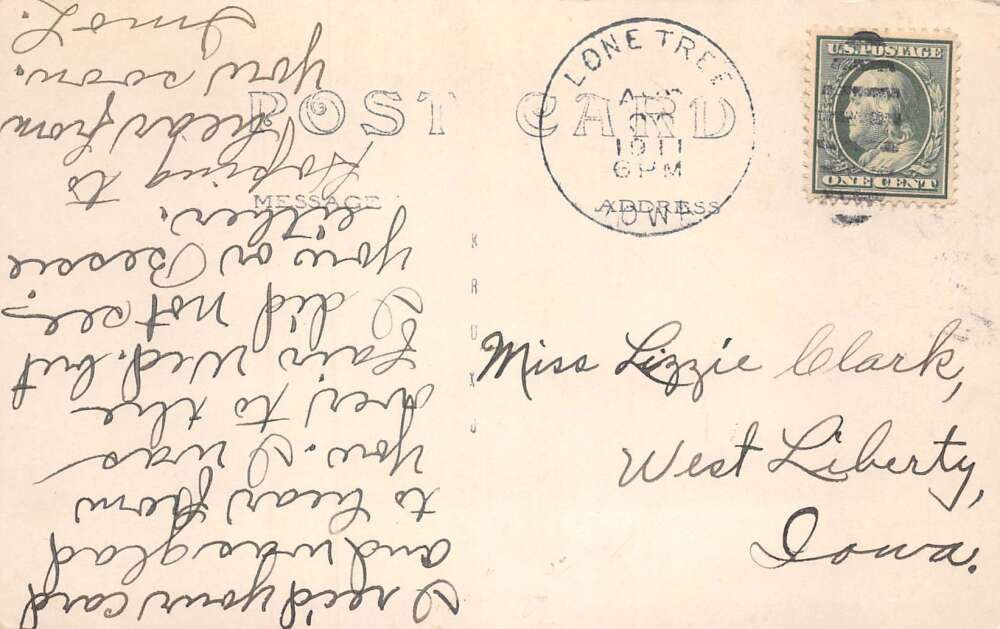 POST CARD
MESSAGE
ADDRESS
LONE TREE
1911
6 PM
IOWA
U.S. POSTAGE
ONE CENT
KRUXO
Miss Lizzie Clark,
West Liberty,
Iowa.
I rec'd your card
and was glad
to hear from
you. I was
over to the
Fair Wed. but
I did not see
you or Bessie
either.
Hoping to
hear from
you soon.
Imo L.